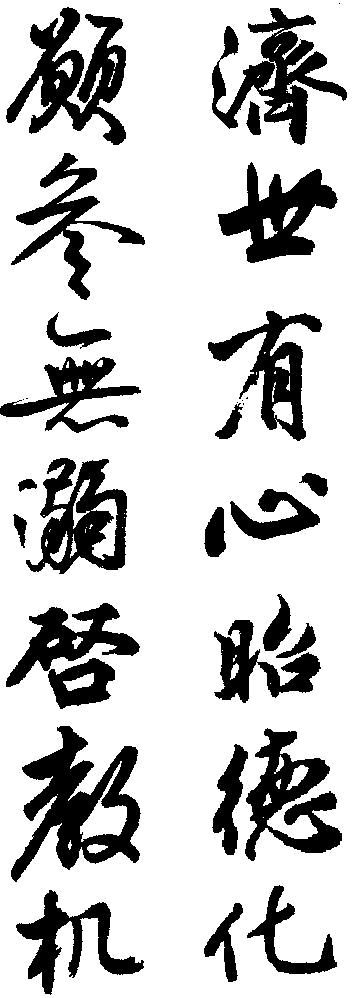 濟世有心昭德化
願參無溺啓教机